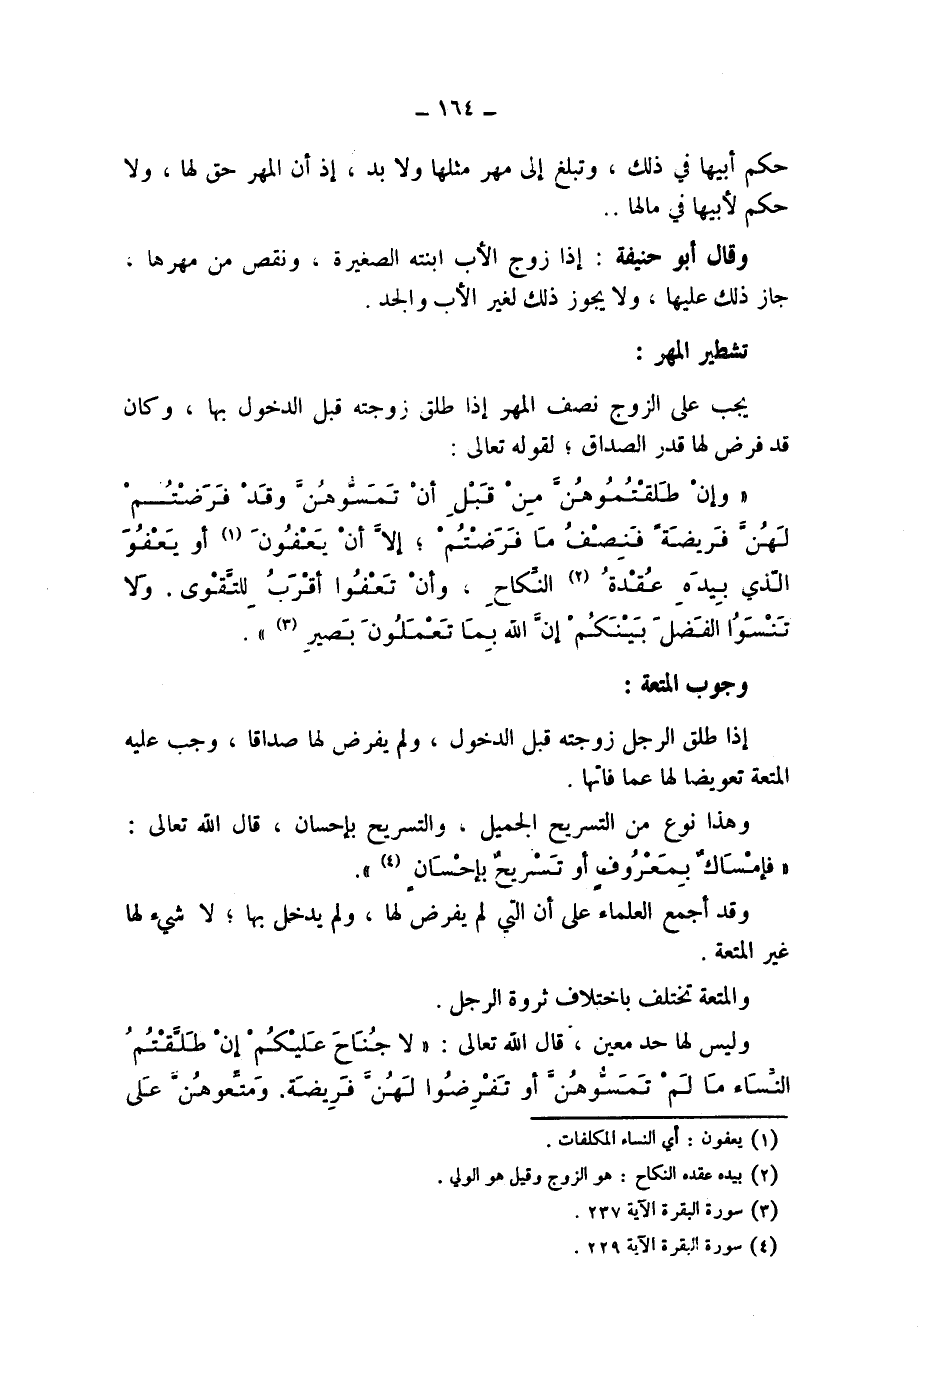 – ١٦٤ –
حكم أبيها في ذلك ، وتبلغ إلى مهر مثلها ولا بد ، إذ أن المهر حق لها ، ولا
حكم لأبيها في مالها ..
وقال أبو حنيفة : إذا زوج الأب ابنته الصغيرة ، ونقص من مهرها ،
جاز ذلك عليها ، ولا يجوز ذلك لغير الأب والجد .
تشطير المهر :
يجب على الزوج نصف المهر إذا طلق زوجته قبل الدخول بها ، وكان
قد فرض لها قدر الصداق ؛ لقوله تعالى :
« وإنْ طَلقْتُمُوهُنَّ مِنْ قَبْلِ أنْ تَمَسُّوهُنَّ وقَدْ فَرَضْتُــمْ
لَهُنَّ فَرِيضَةً فَنِصْفُ مَا فَرَضْتُمْ ؛ إلاَّ أنْ يَعْفُونَ (١) أو يَعْفُوَ
الّذي بِيدَهِ عُقْدَةُ (٢) النِّكاحِ ، وأنْ تَعْفُوا أقْرَبُ لِلتَّقْوى . وَلا
تَنْسَوُا الفَضلَ بَيْنَكُمْ إنَّ الله بِمَا تَعْمَلُونَ بَصيرِ (٣) » .
وجوب المتعة :
إذا طلق الرجل زوجته قبل الدخول ، ولم يفرض لها صداقا ، وجب عليه
المتعة تعويضا لها عما فاتها .
وهذا نوع من التسريح الجميل ، والتسريح بإحسان ، قال الله تعالى :
« فإمْسَاكٌ بِمَعْرُوفٍ أو تَسْريحٌ بإحْسَانٍ (٤) ».
وقد أجمع العلماء على أن التي لم يفرض لها ، ولم يدخل بها ؛ لا شيء لها
غير المتعة .
والمتعة تختلف باختلاف ثروة الرجل .
وليس لها حد معين ، قال الله تعالى : « لا جُنَاحَ عَليْكُمْ إنْ طَلَّقْتُمُ
النِّسَاء مَا لَمْ تَمَسُّوهُنَّ أو تَفْرِضُوا لَهُنَّ فَرِيضَة. وَمَتِّعوهُنَّ عَلى
(١) يعفون : أي النساء المكلفات .
(٢) بيده عقده النكاح : هو الزوج وقيل هو الولي .
(٣) سورة البقرة الآية ٢٣٧ .
(٤) سورة البقرة الآية ٢٢٩ .